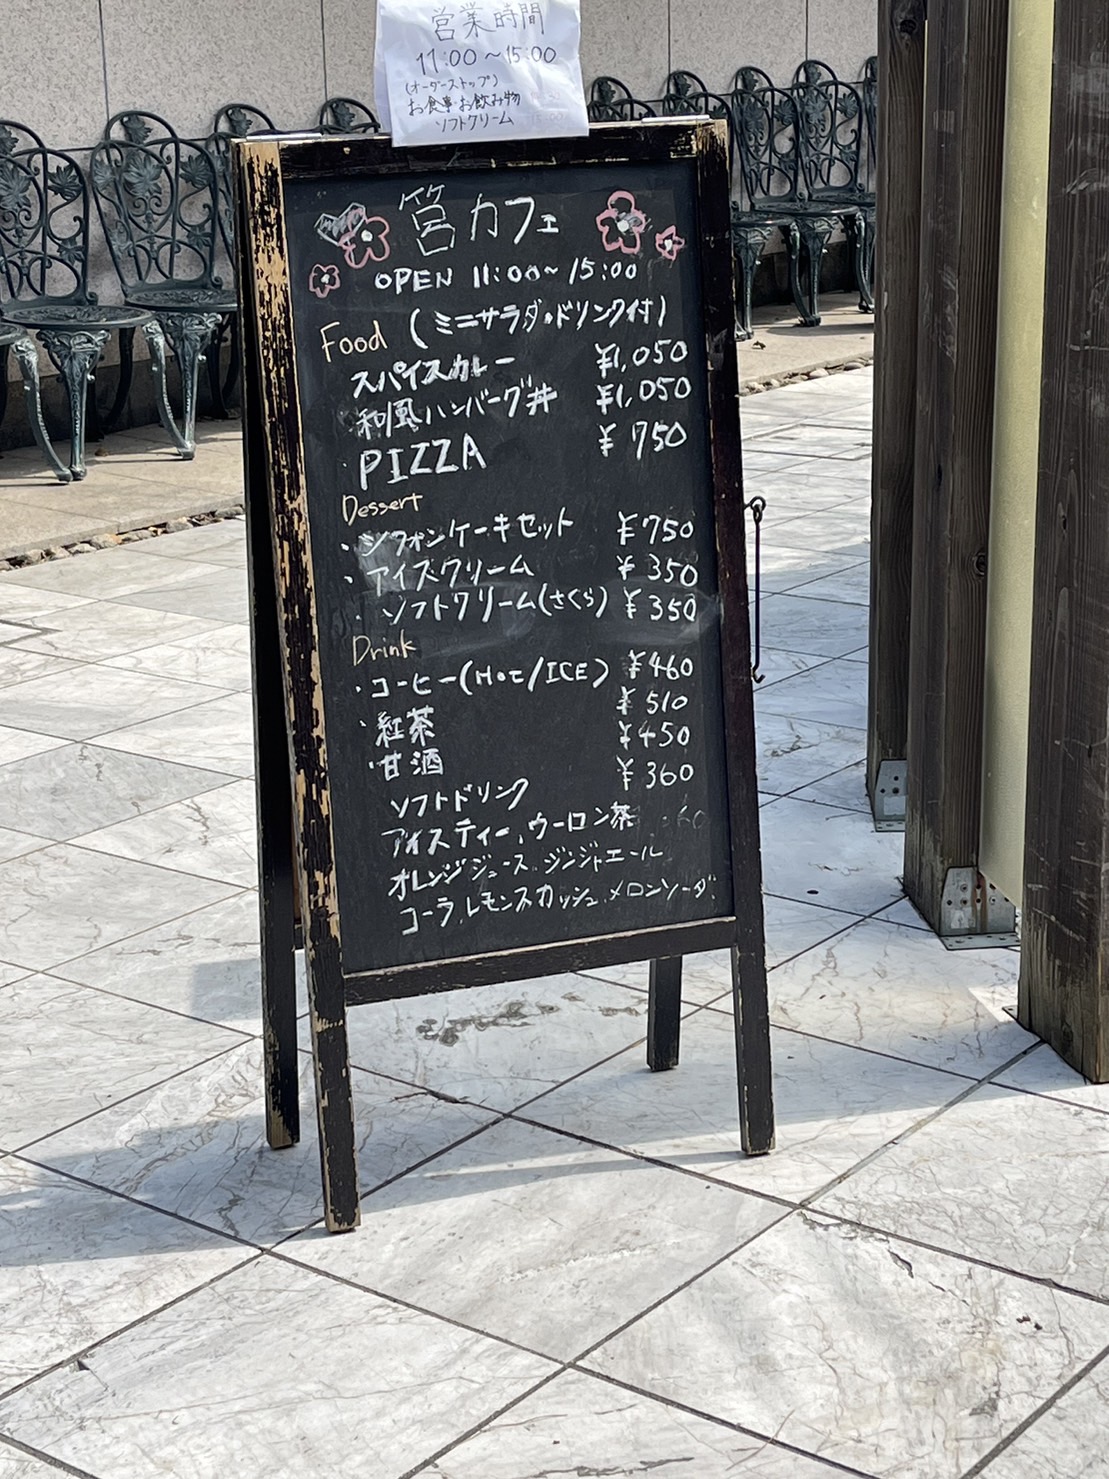 営業時間
11:00～15:00
(オーダーストップ)
お食事・お飲み物
ソフトクリーム
筥カフェ
OPEN 11:00～15:00
Food (ミニサラダ・ドリンク付)
スパイスカレー ¥1,050
和風ハンバーグ丼 ¥1,050
PIZZA ¥750
Dessert
・シフォンケーキセット ¥750
・アイスクリーム ¥350
・ソフトクリーム(さくら) ¥350
Drink
・コーヒー(Hot/ICE) ¥460
・紅茶 ¥510
・甘酒 ¥450
ソフトドリンク ¥360
アイスティー、ウーロン茶
オレンジジュース、ジンジャエール
コーラ、レモンスカッシュ、メロンソーダ